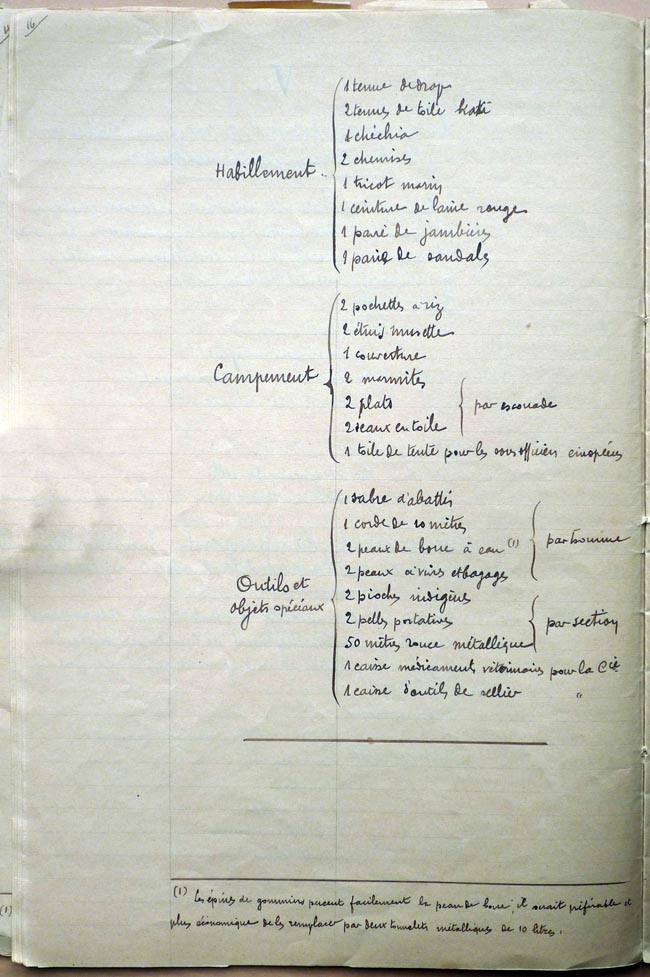 16
1 tenue de drap
2 tenues de toile kaki
1 chéchia
Habillement ..
2 chemises
1 tricot marin
1 ceinture de laine rouge
1 paire de jambières
1 paire de sandales
2 pochettes à riz
2 étuis musette
1 couverture
Campement
2 marmites
2 plats
par escouade
2 seaux en toile
1 toile de tente pour les sous officiers européens
1 sabre d'abattis
1 corde de 10 mètres
2 peaux de bouc à eau (1)
par homme
2 peaux à vivres et bagages
Outils et
objets spéciaux
2 pioches indigènes
2 pelles portatives
par section
50 mètres ronce métallique
1 caisse médicament vétérinaires pour la Cie
1 caisse d'outils de sellier "
(1) Les épines de gommiers percent facilement la peau de bouc; il serait préférable et
plus économique de les remplacer par deux tonnelets métalliques de 10 litres.
(1)